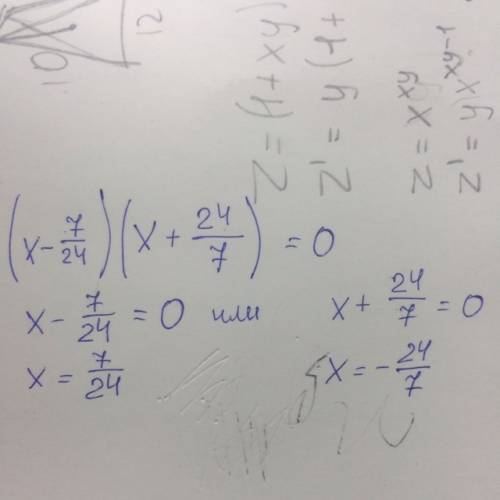 10
12
z = (1 + xy)
z' = y (1 +
z = x^{xy}
z' = y x^{xy-1}
(x - 7/24)(x + 24/7) = 0
x - 7/24 = 0 или x + 24/7 = 0
x = 7/24 x = - 24/7